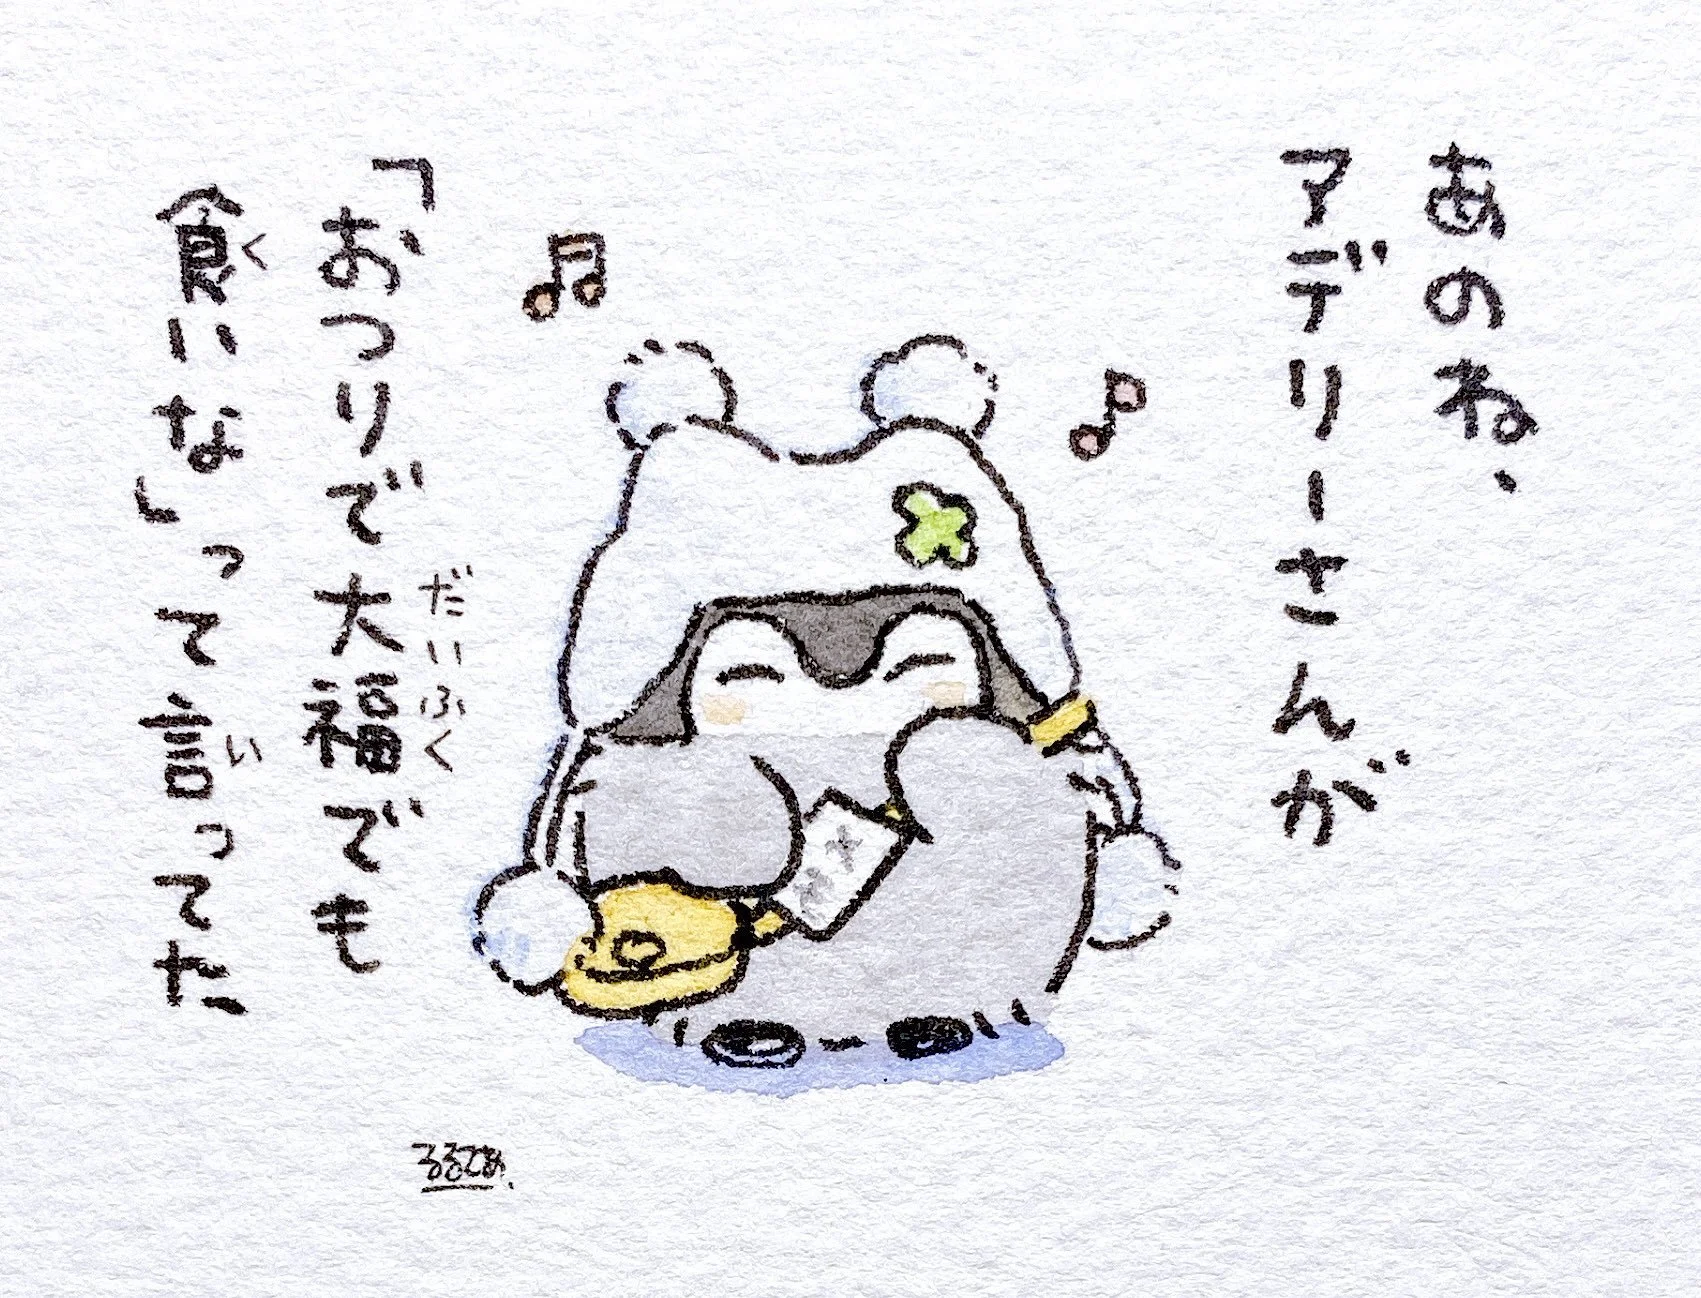 あのね、
アデリーさんが
「おつりで大福でも
だいふく
食いな」って言ってた
く
い
るるてあ